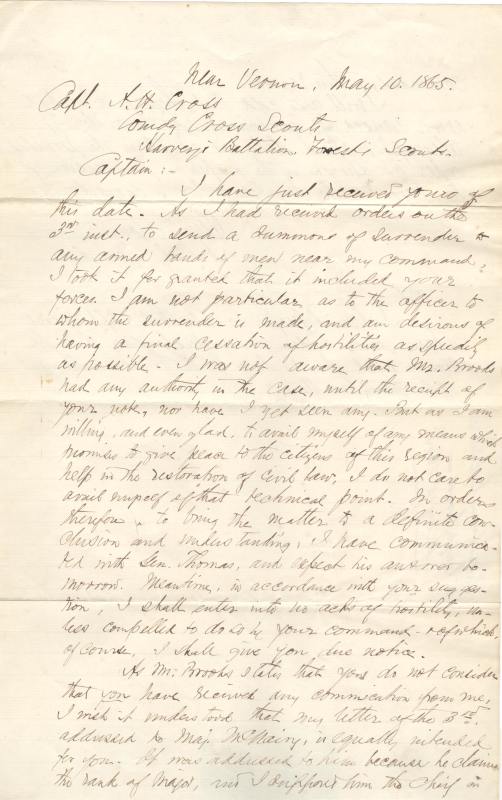 Near Vernon, May 10. 1865.
Capt. A. H. Cross
Comdg Cross Scouts
Harvey's Battalion, Forest's Scouts.
Captain :-
I have just received yours of
this date. As I had received orders on the
3rd inst., to send a summons of surrender to
any armed bands of men near my command,
I took it for granted that it included your
forces. I am not particular as to the officer to
whom the surrender is made, and am desirous of
having a final cessation of hostilities as speedily
as possible. I was not aware that Mr. Brooks
had any authority in the case, until the receipt of
your note, nor have I yet seen any. But as I am
willing, and even glad, to avail myself of any means which
promises to give peace to the citizens of this region and
help in the restoration of civil law, I do not care to
avail myself of that technical point. In order
therefore, to bring the matter to a definite con-
clusion and understanding, I have communica-
ted with Gen. Thomas, and expect his answer to-
morrow. Meantime, in accordance with your sugges-
tion, I shall enter into no acts of hostility, un-
less compelled to do so by your command - of which,
of course, I shall give you due notice.
As Mr. Brooks states that you do not consider
that you have received any communication from me,
I wish it understood that my letter of the 3rd.
addressed to Maj. McNairy, is equally intended
for you. It was addressed to him because he claims
the rank of Major, and I supposed him the Chief in